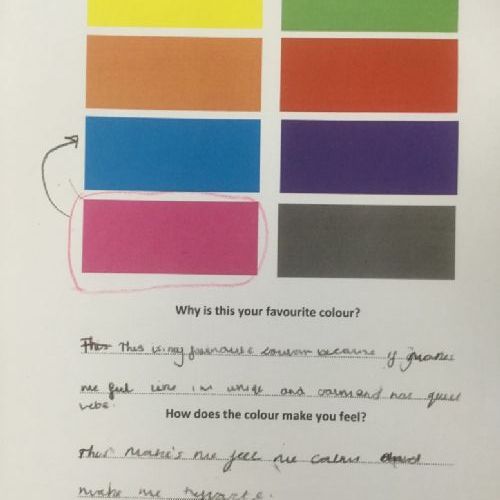 Why is this your favourite colour?
This This is my favourite colour because if makes
me feel like im uniqe and calm and has good
vebe.
How does the colour make you feel?
This make's me feel me calm and
make me